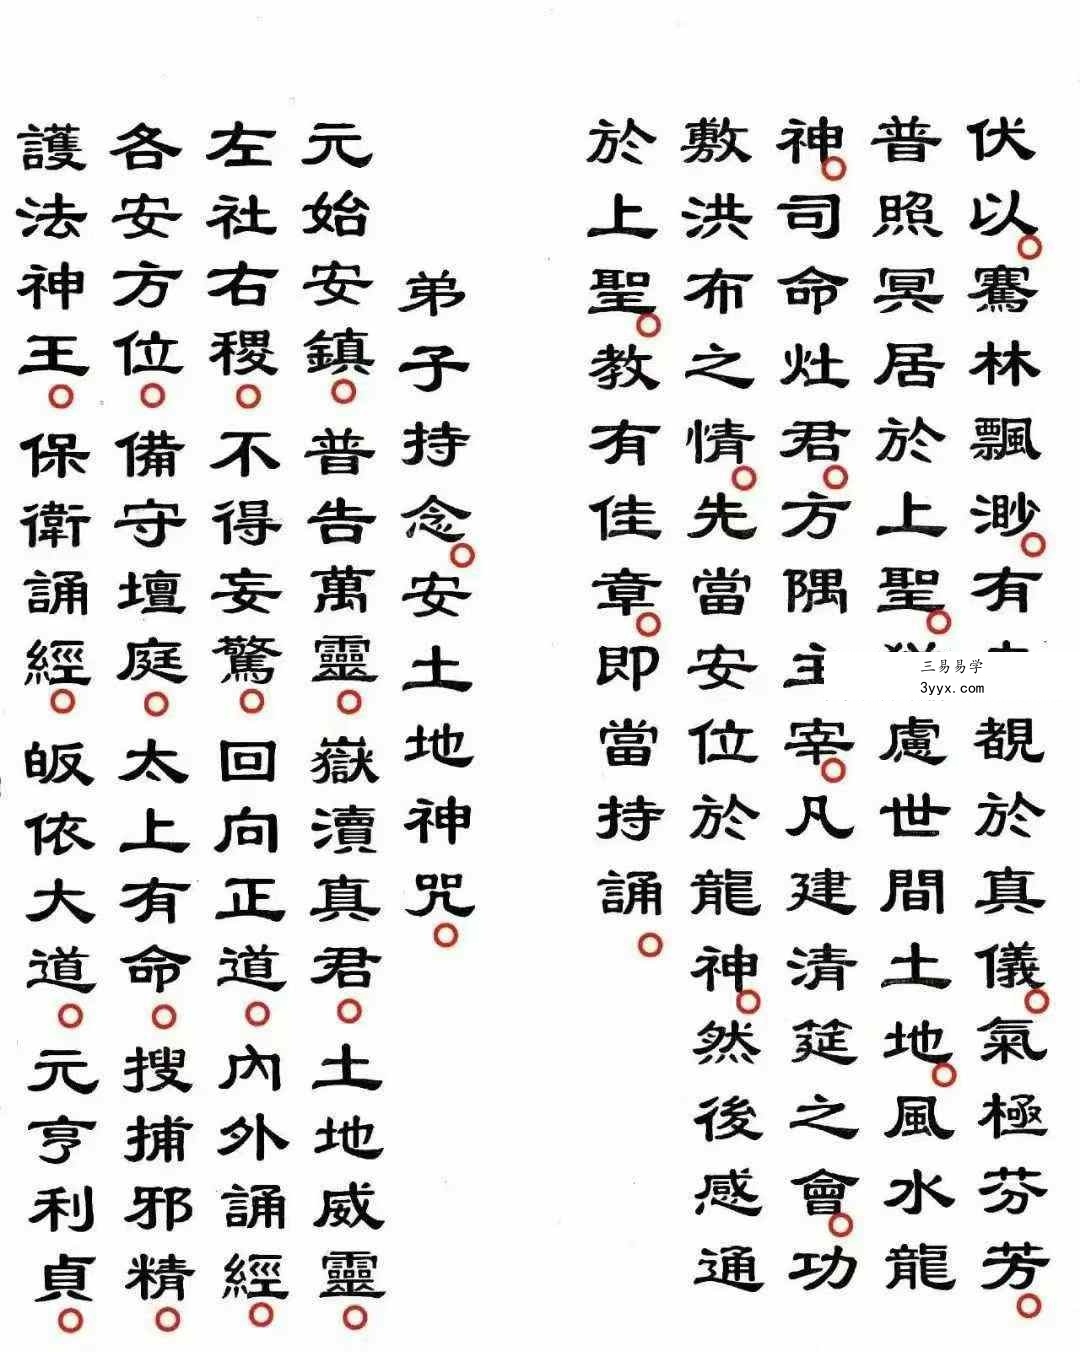 伏以騫林飄渺有覩於真儀氣極芬芳
普照冥居於上聖慮世間土地風水龍
神司命灶君方隅主宰凡建清筵之會功
敷洪布之情先當安位於龍神然後感通
於上聖教有佳章即當持誦
弟子持念安土地神咒
元始安鎮普告萬靈嶽瀆真君土地威靈
左社右稷不得妄驚回向正道內外誦經
各安方位備守壇庭太上有命搜捕邪精
護法神王保衛誦經皈依大道元亨利貞
三易易学
3yyx.com